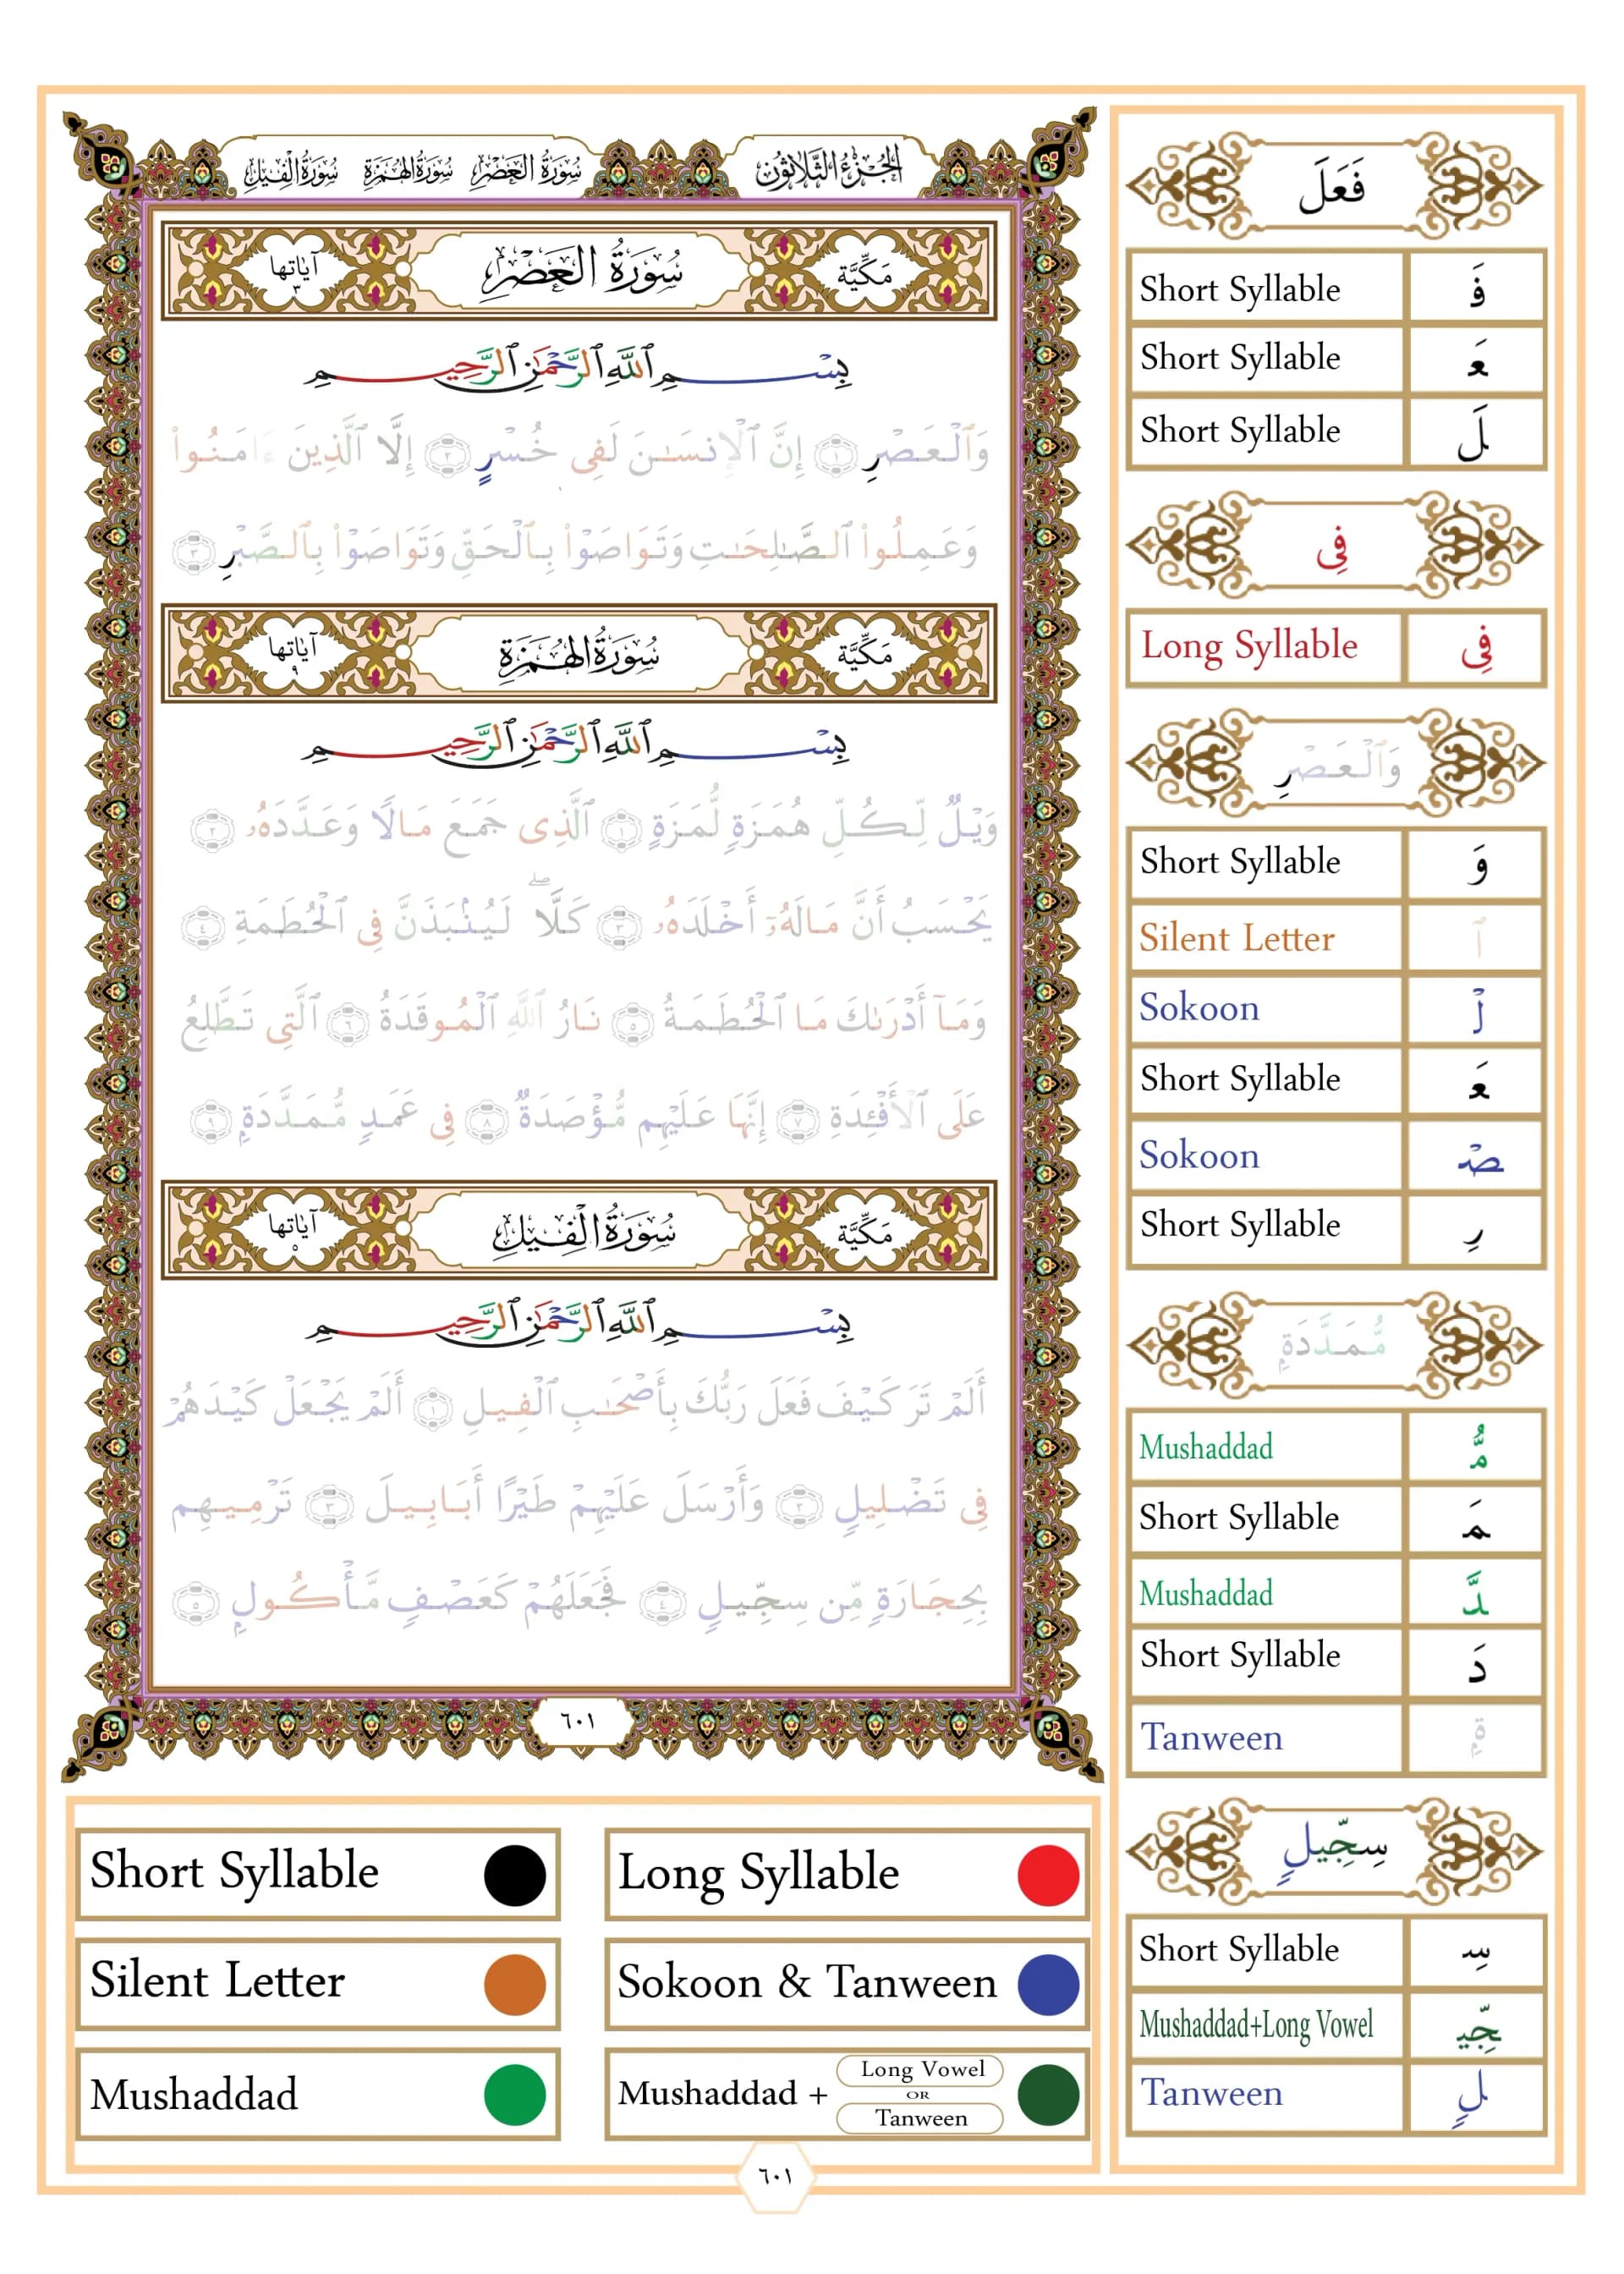 الجُزْءُ الثَّلَاثُونَ
سُورَةُ العَصْرِ سُورَةُ الهُمَزَةِ سُورَةُ الْفِيلِ
مَكِّيَّة سُورَةُ العَصْرِ آيَاتها ٣
بِسْمِ ٱللَّهِ ٱلرَّحْمَٰنِ ٱلرَّحِيمِ
وَٱلْعَصْرِ ١ إِنَّ ٱلْإِنسَٰنَ لَفِى خُسْرٍ ٢ إِلَّا ٱلَّذِينَ ءَامَنُوا۟
وَعَمِلُوا۟ ٱلصَّٰلِحَٰتِ وَتَوَاصَوْا۟ بِٱلْحَقِّ وَتَوَاصَوْا۟ بِٱلصَّبْرِ ٣
مَكِّيَّة سُورَةُ الهُمَزَةِ آيَاتها ٩
بِسْمِ ٱللَّهِ ٱلرَّحْمَٰنِ ٱلرَّحِيمِ
وَيْلٌ لِّكُلِّ هُمَزَةٍ لُّمَزَةٍ ١ ٱلَّذِى جَمَعَ مَالًا وَعَدَّدَهُۥ ٢
يَحْسَبُ أَنَّ مَالَهُۥٓ أَخْلَدَهُۥ ٣ كَلَّا ۖ لَيُنۢبَذَنَّ فِى ٱلْحُطَمَةِ ٤
وَمَآ أَدْرَىٰكَ مَا ٱلْحُطَمَةُ ٥ نَارُ ٱللَّهِ ٱلْمُوقَدَةُ ٦ ٱلَّتِى تَطَّلِعُ
عَلَى ٱلْأَفْـِٔدَةِ ٧ إِنَّهَا عَلَيْهِم مُّؤْصَدَةٌ ٨ فِى عَمَدٍ مُّمَدَّدَةٍۭ ٩
مَكِّيَّة سُورَةُ الْفِيلِ آيَاتها ٥
بِسْمِ ٱللَّهِ ٱلرَّحْمَٰنِ ٱلرَّحِيمِ
أَلَمْ تَرَ كَيْفَ فَعَلَ رَبُّكَ بِأَصْحَٰبِ ٱلْفِيلِ ١ أَلَمْ يَجْعَلْ كَيْدَهُمْ
فِى تَضْلِيلٍ ٢ وَأَرْسَلَ عَلَيْهِمْ طَيْرًا أَبَابِيلَ ٣ تَرْمِيهِم
بِحِجَارَةٍ مِّن سِجِّيلٍ ٤ فَجَعَلَهُمْ كَعَصْفٍ مَّأْكُولٍۭ ٥
٦٠١
فَعَلَ
Short Syllable فَ
Short Syllable عَ
Short Syllable لَ
فِى
Long Syllable فِى
وَٱلْعَصْرِ
Short Syllable وَ
Silent Letter ٱ
Sokoon لْ
Short Syllable عَ
Sokoon صْ
Short Syllable رِ
مُّمَدَّدَةٍۭ
Mushaddad مُّ
Short Syllable مَ
Mushaddad دَّ
Short Syllable دَ
Tanween ةٍۭ
سِجِّيلٍ
Short Syllable سِ
Mushaddad+Long Vowel جِّي
Tanween لٍ
Short Syllable
Long Syllable
Silent Letter
Sokoon & Tanween
Mushaddad
Mushaddad + Long Vowel OR Tanween
٦٠١